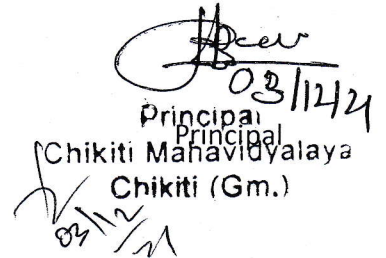 03/12/21
Principal
Principal
Chikiti Mahavidyalaya
Chikiti (Gm.)
03/12/21